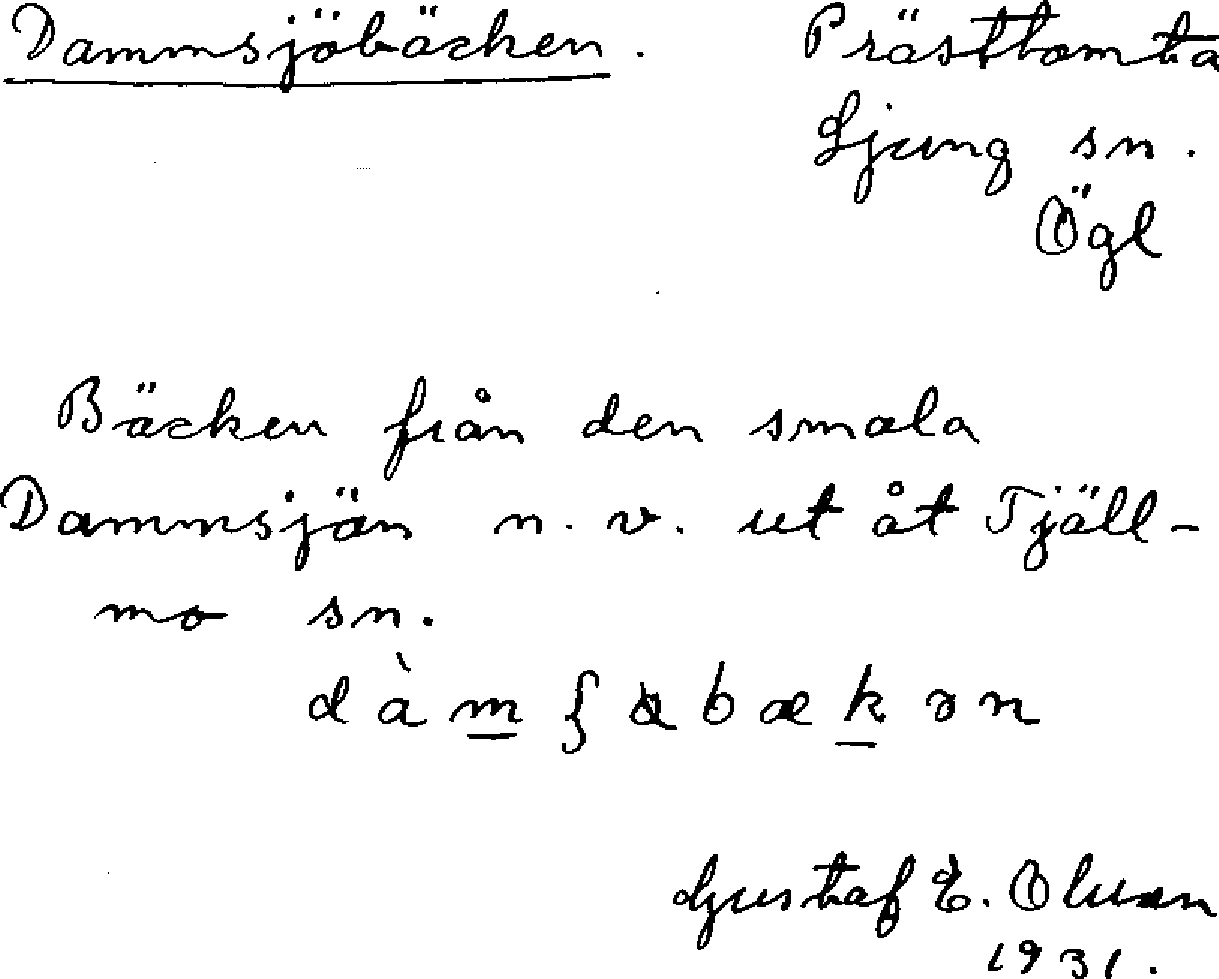 Dammsjöbäcken. Prästtomta
Ljung sn.
Ögl
Bäcken från den smala
Dammsjön n.v. ut åt Tjäll-
mo sn.
Gustaf E. Olsson
1931.